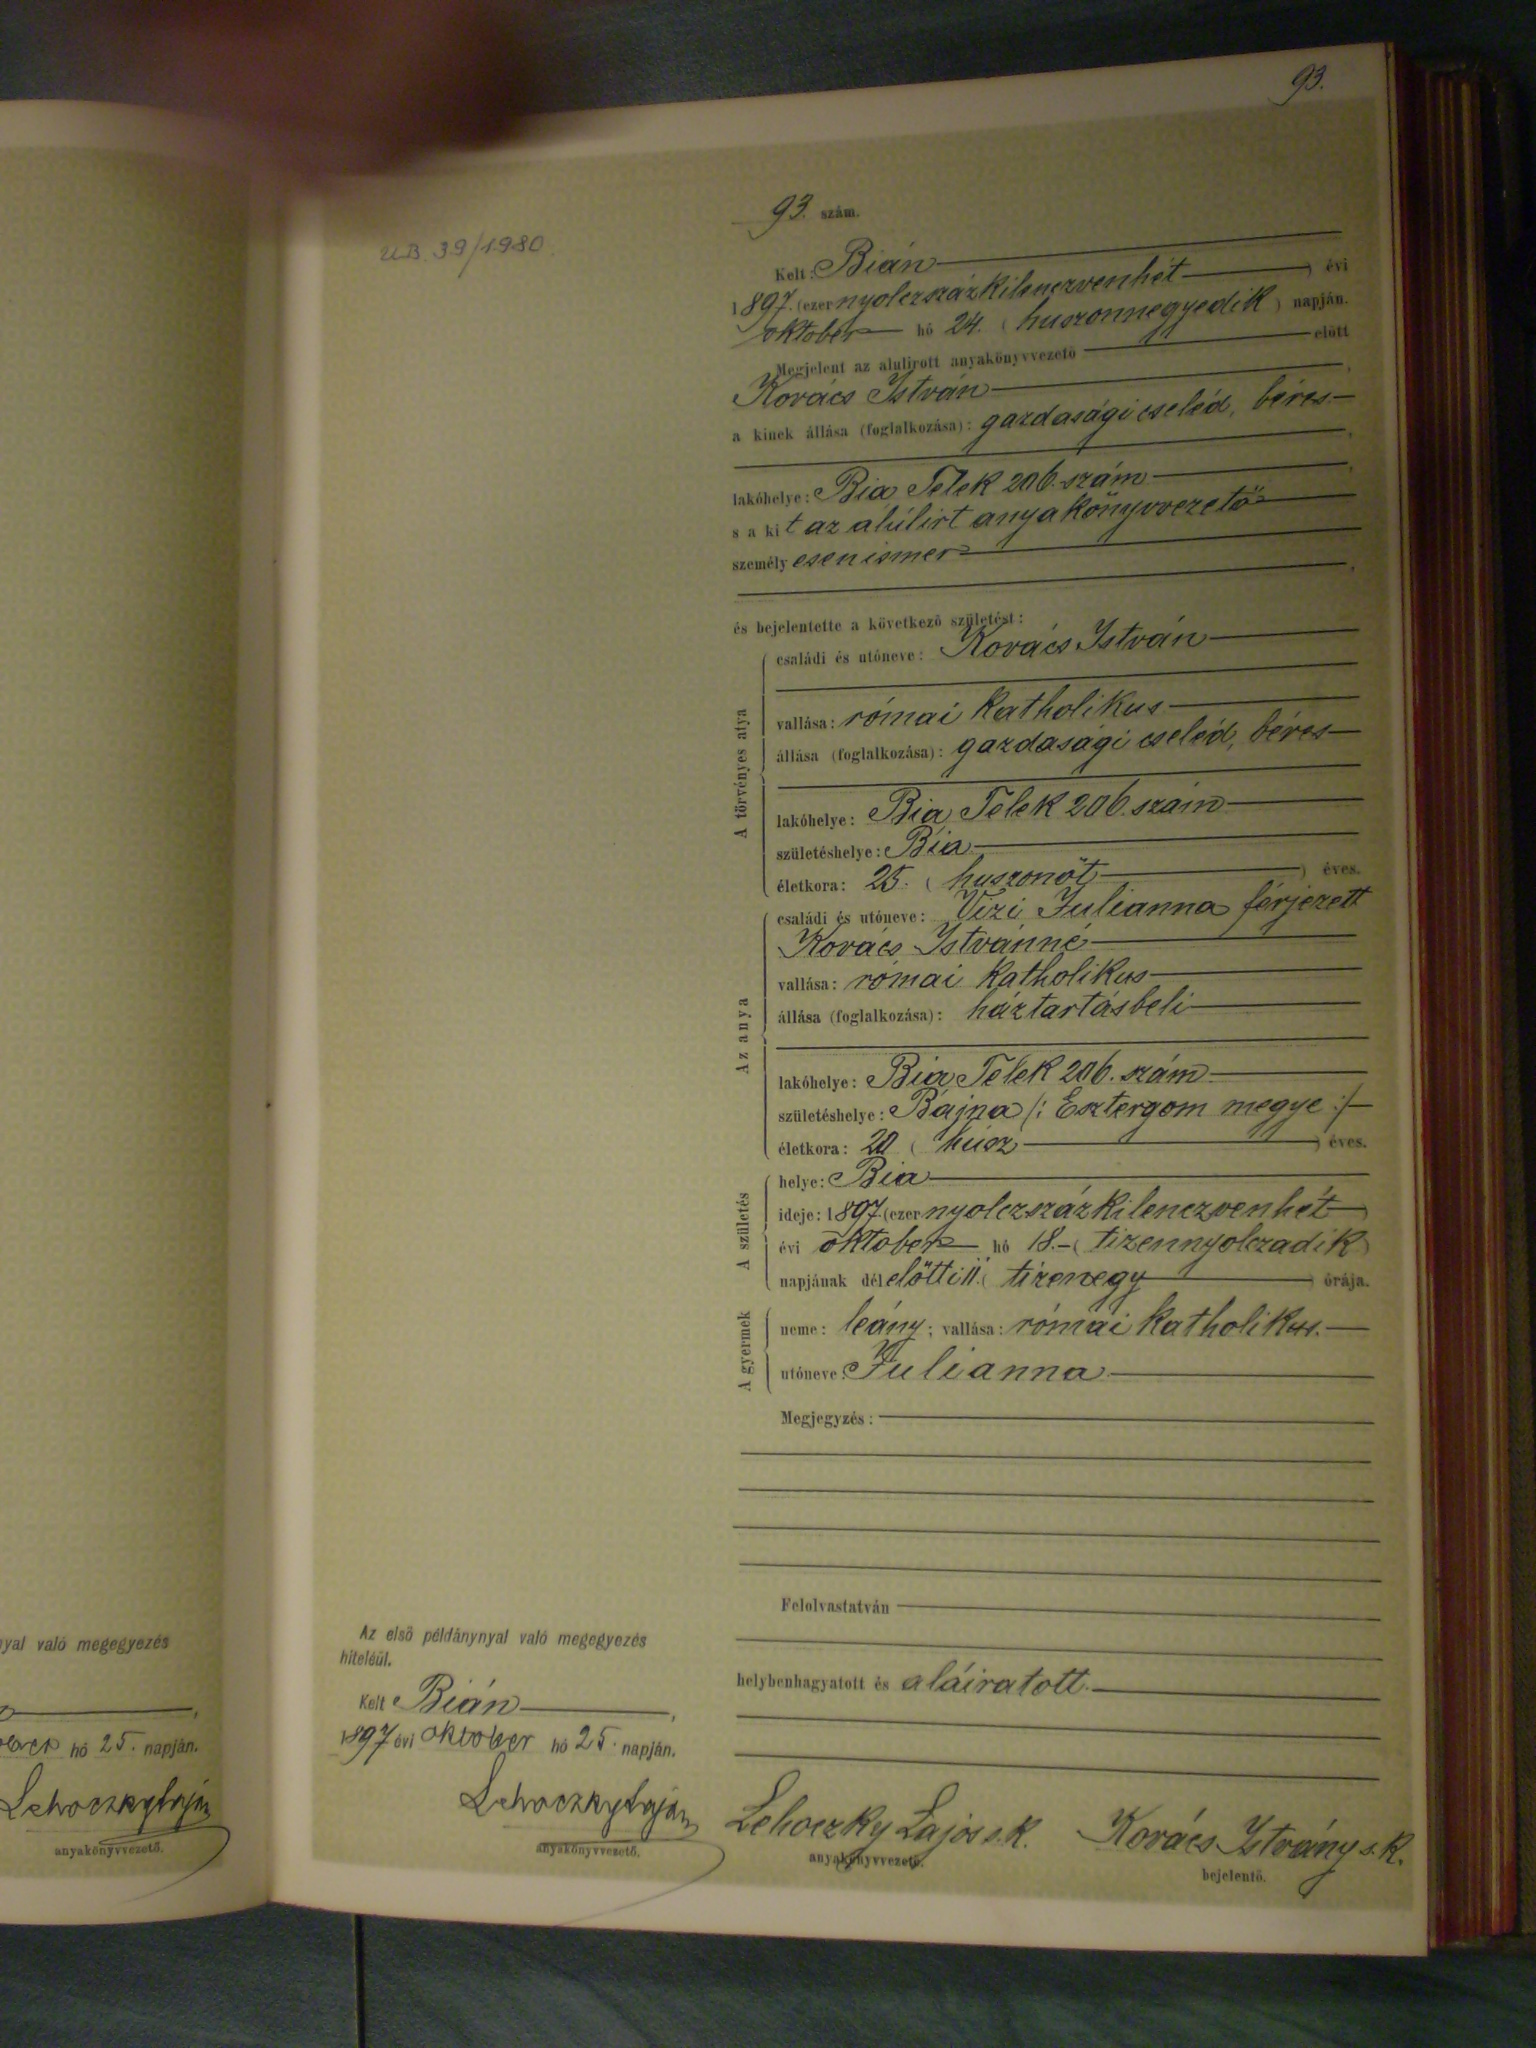 93.
93. szám.
U.B. 39/1980.
Kelt: Bián
1897. (ezer nyolczszázkilenczvenhét) évi
október hó 24. (huszonnegyedik) napján.
Megjelent az alulirott anyakönyvvezető előtt
Kovács István,
a kinek állása (foglalkozása): gazdasági cseléd, béres
lakóhelye: Bia Telek 206. szám,
s a kit az alúlirt anyakönyvvezető
személyesen ismer,
és bejelentette a következő születést:
A törvényes atya
családi és utóneve: Kovács István
vallása: római katholikus
állása (foglalkozása): gazdasági cseléd, béres
lakóhelye: Bia Telek 206. szám
születéshelye: Bia
életkora: 25. (huszonöt) éves.
Az anya
családi és utóneve: Vizi Julianna férjezett
Kovács Istvánné
vallása: római katholikus
állása (foglalkozása): háztartásbeli
lakóhelye: Bia Telek 206. szám
születéshelye: Bajna /: Esztergom megye :/
életkora: 20 (húsz) éves.
A születés
helye: Bia
ideje: 1897. (ezer nyolczszázkilenczvenhét)
évi október hó 18. (tizennyolczadik)
napjának délelőtti 11. (tizenegy) órája.
A gyermek
neme: leány; vallása: római katholikus.
utóneve: Julianna
Megjegyzés:
Felolvastatván
helybenhagyatott és aláiratott.
Lehoczky Lajos s.k.
anyakönyvvezető.
Kovács Istvány s.k.
bejelentő.
Az első példánynyal való megegyezés
hiteléül.
Kelt Bián,
1897 évi október hó 25. napján.
Lehoczky Lajos
anyakönyvvezető.
nyal való megegyezés
hó 25. napján.
Lehoczky Lajos
anyakönyvvezető.